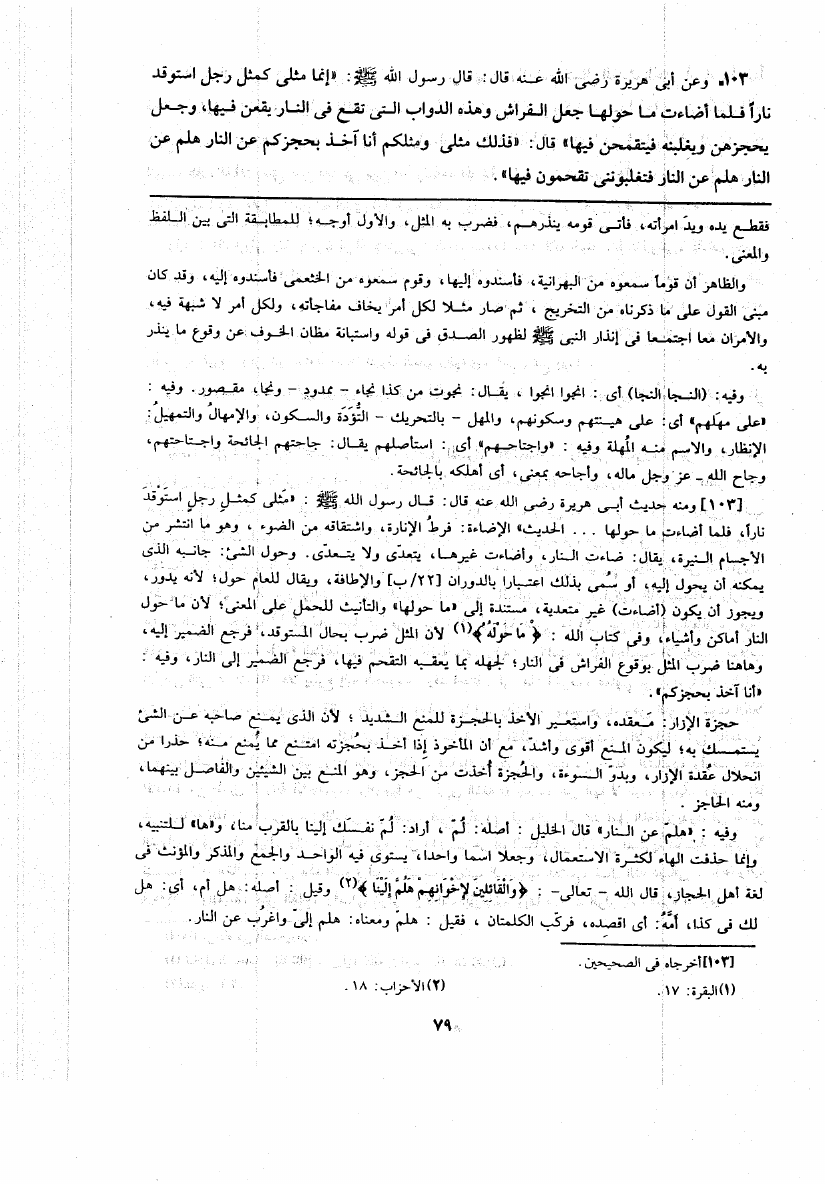 ١٠٣ـ وعن أبى هريرة رضى الله عنه قال: قال رسول الله ﷺ: «إنما مثلى كمثل رجل استوقد
ناراً فلما أضاءت ما حولها جعل الفراش وهذه الدواب التى تقع فى النار يقعن فيها، وجعل
يحجزهن ويغلبنه فيتقمحن فيها» قال: «فذلك مثلى ومثلكم أنا آخذ بحجزكم عن النار هلم عن
النار هلم عن النار فتغلبوننى تقحمون فيها».
فقطع يده ويدَ امرأته، فأتى قومه ينذرهم، فضرب به المثل، والأول أوجه؛ للمطابقة التى بين اللفظ
والمعنى.
والظاهر أن قوماً سمعوه من البهرانية، فأسندوه إليها، وقوم سمعوه من الخثعمى فأسندوه إليه، وقد كان
مبنى القول على ما ذكرناه من التخريج ، ثم صار مثلا لكل أمر يخاف مفاجأته، ولكل أمر لا شبهة فيه،
والأمران معا اجتمعا فى إنذار النبى ﷺ لظهور الصدق فى قوله واستبانة مظان الخوف عن وقوع ما ينذر
به.
وفيه: (النجا النجا) أى : انجوا انجوا ، يقال: نجوت من كذا نجاء – ممدود – ونجا، مقصور. وفيه :
«على مهلهم» أى: على هينتهم وسكونهم، والمهل – بالتحريك – التُّؤَدَة والسكون، والإمهالُ والتمهيلُ:
الإنظار، والاسم منه المُهلة وفيه : «واجتاحهم» أى: استأصلهم يقال: جاحتهم الجائحة واجتاحتهم،
وجاح الله ـ عز وجل ماله، وأجاحه بمعنى، أى أهلكه بالجائحة.
[١٠٣] ومنه حديث أبى هريرة رضى الله عنه قال: قال رسول الله ﷺ : «مَثلى كمثل رجلٍ استَوْقَدَ
ناراً، فلما أضاءت ما حولها ... الحديث» الإضاءة: فرطُ الإنارة، واشتقاقه من الضوء ، وهو ما انتشر من
الأجسام النيرة، يقال: ضاءت النار، وأضاءت غيرها، يتعدّى ولا يتعدّى. وحول الشئ: جانبه الذى
يمكنه أن يحول إليه، أو سُمى بذلك اعتبارا بالدوران [٢٢/ب] والإطافة، ويقال للعام حول؛ لأنه يدورُ،
ويجوز أن يكون (أضاءت) غير متعدية، مستندة إلى «ما حولها» والتأنيث للحمل على المعنى؛ لأن ما حول
النار أماكن وأشياء، وفى كتاب الله : ﴿ مَا حَوْلَهُ﴾(١) لأن المثل ضرب بحال المستوقد، فرجع الضمير إليه،
وهاهنا ضرب المثل بوقوع الفراش فى النار؛ لجهله بما يعقبه التقحم فيها، فرجع الضمير إلى النار، وفيه :
«أنا آخذ بحجزكم».
حجزة الإزار: مَعقده، واستعير الأخذ بالحجزة للمنع الشديد ؛ لأن الذى يمنع صاحبه عن الشئ
يستمسك به؛ ليكون المنع أقوى وأشدّ، مع أن المأخوذ إذا أخذ بحُجزته امتنع مما يُمنع منه؛ حذرا من
انحلال عقدة الإزار، وبدوّ السوءة، والحُجزة أُخذت من الحجز، وهو المنع بين الشيئين والفاصل بينهما،
ومنه الحاجز .
وفيه : «هلمّ عن النار» قال الخليل : أصله: لُمّ ، أراد: لُمّ نفسك إلينا بالقرب منا، و«ها» للتنبيه،
وإنما حذفت الهاء لكثرة الاستعمال، وجعلا اسما واحدا، يستوى فيه الواحد والجمع والمذكر والمؤنث فى
لغة أهل الحجاز، قال الله – تعالى– : ﴿وَالْقَائِلِينَ لِإِخْوَانِهِمْ هَلُمَّ إِلَيْنَا ﴾(٢) وقيل : أصله: هل أم، أى: هل
لك فى كذا، أمَّهُ: أى اقصده، فركّب الكلمتان ، فقيل : هلمّ ومعناه: هلم إلىّ واغرُب عن النار.
[١٠٣]أخرجاه فى الصحيحين.
(١)البقرة: ١٧. (٢)الأحزاب: ١٨.
٧٩